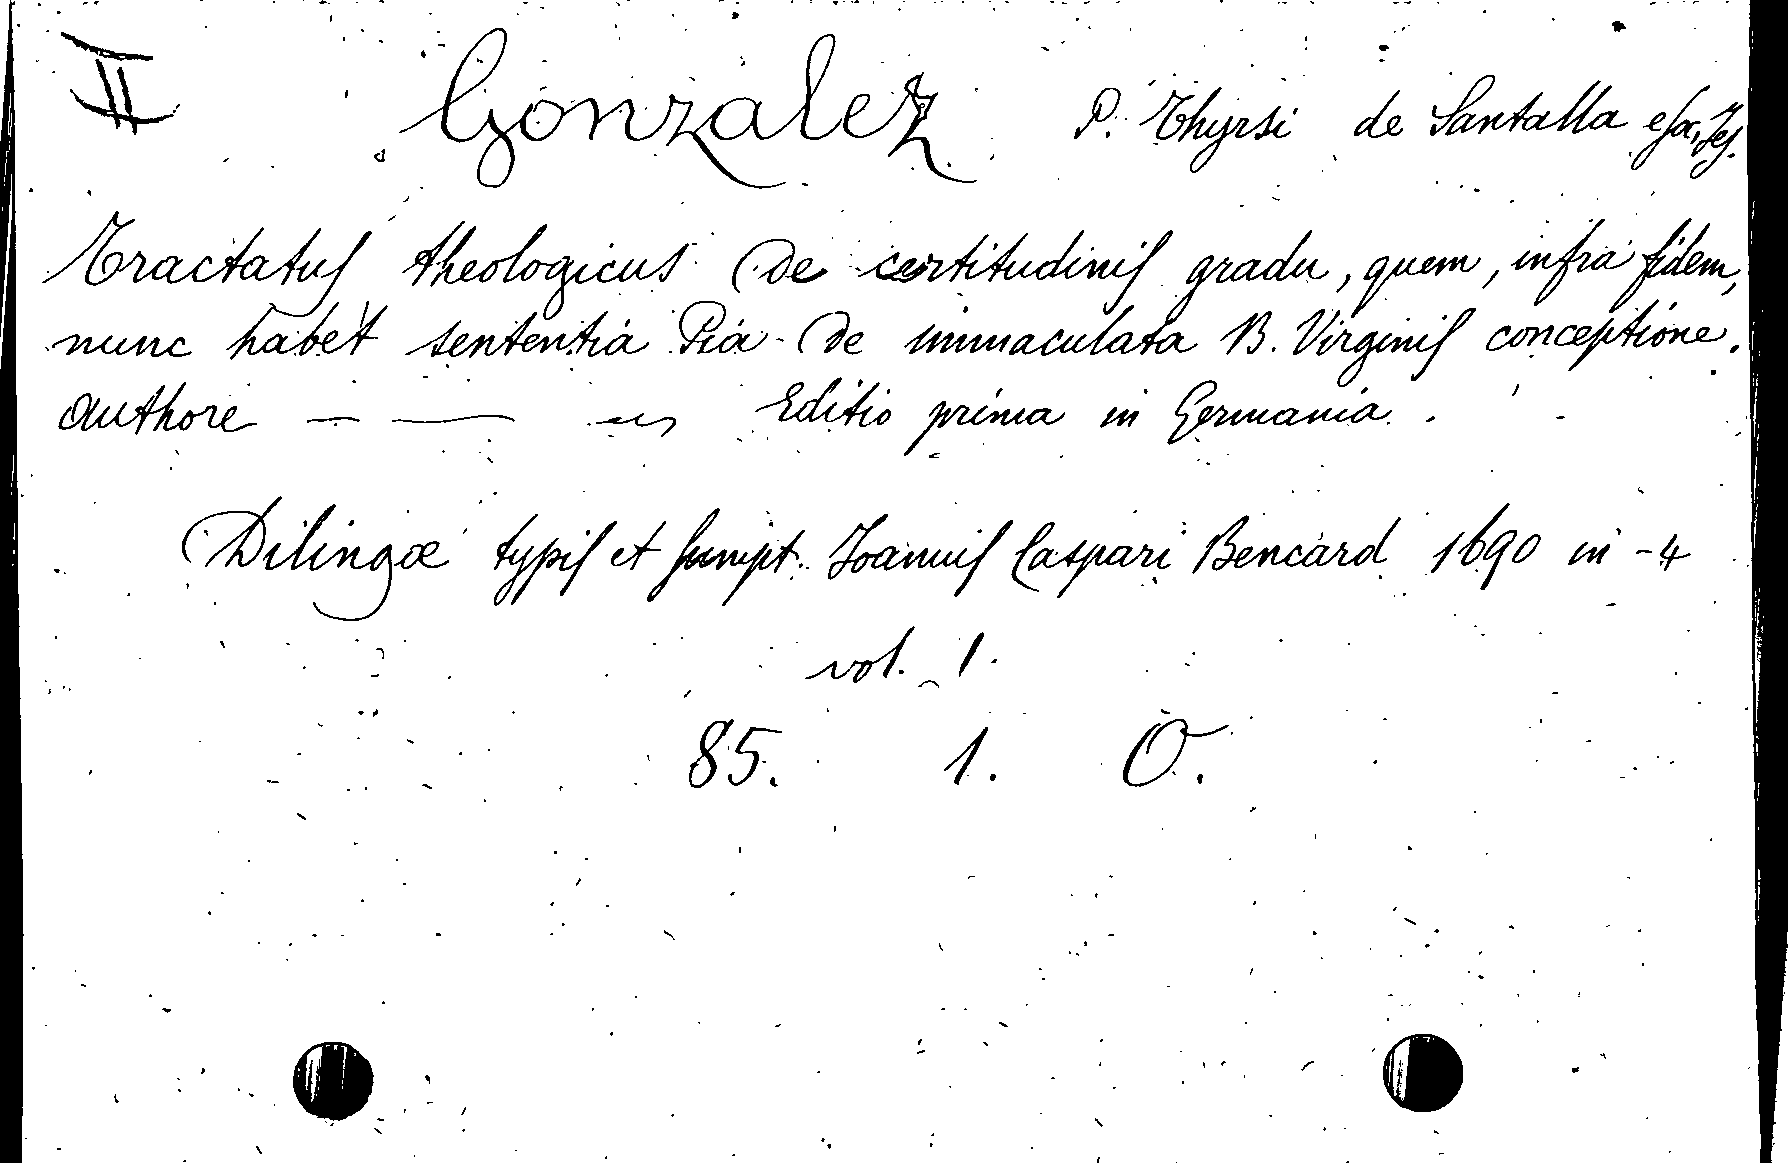 II Gonzalez P. Thyrsi de Santalla e Soc. Jes.
Tractatus theologicus De certitudinis gradu, quem, infra fidem,
nunc habet sententia Pia De immaculata B. Virginis conceptione.
authore — — — Editio prima in Germania.
Dilingæ typis et sumpt. Joannis Caspari Bencard 1690 in -4
vol. 1.
85. 1. O.